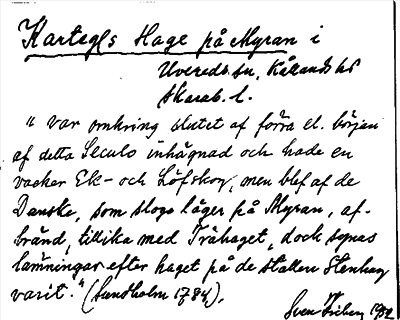 Kartegls Hage på Myran i
Uvereds sn, Kållands hd
Skarab. l.
"var omkring slutet af förra el. början
af detta Seculo inhägnad och hade en
vacker Ek- och Löfskog, men blef af de
Danske, som slogo läger på Myran, af-
bränd, tillika med Trähaget, dock synas
lämningar efter haget på de ställen Stenhag
varit." (Sundholm 1784).
Sven